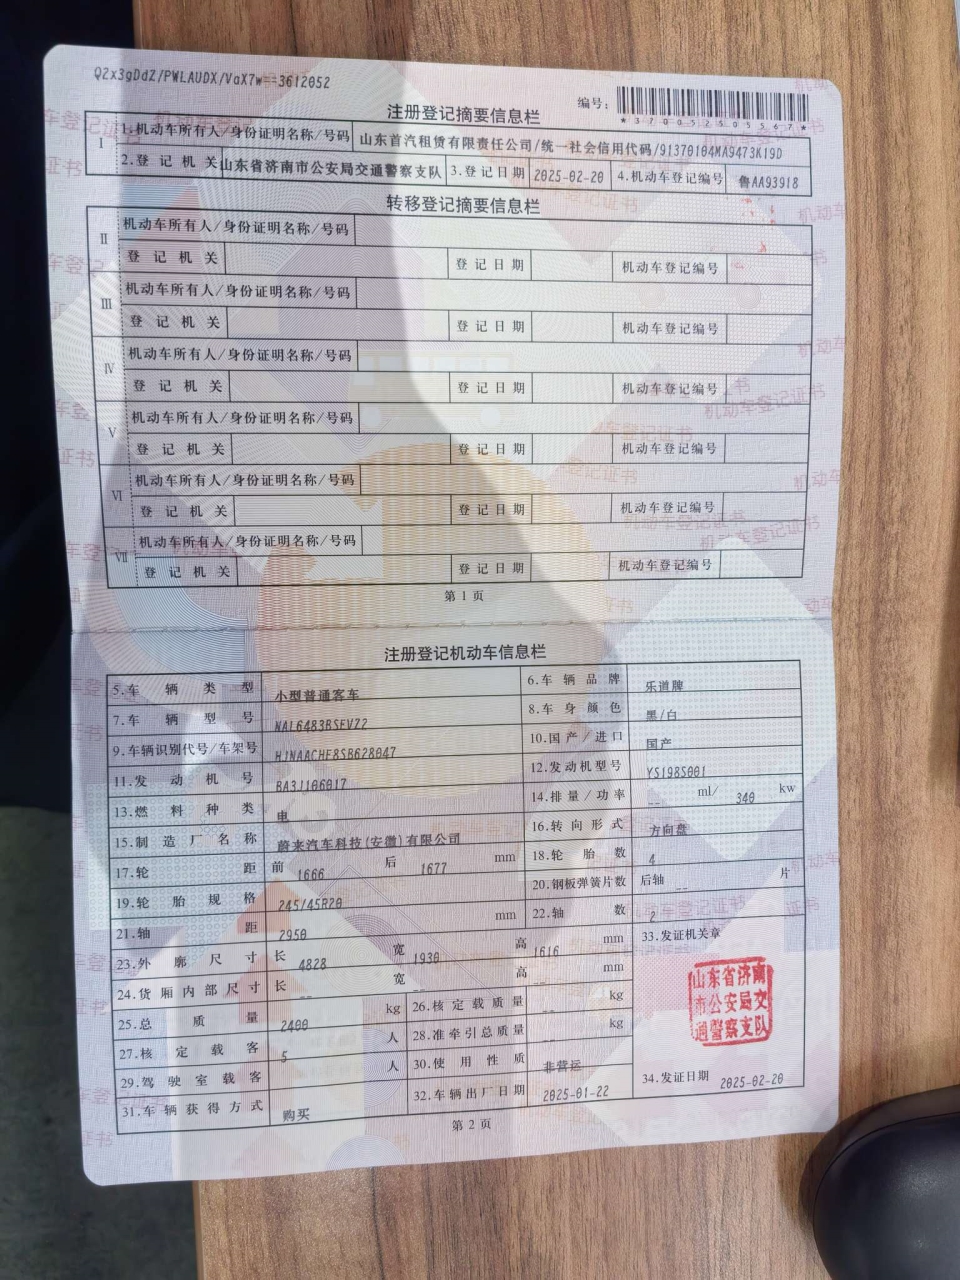 Q2x3gDdZ/PWLAUDX/VaX7w==3612052
注册登记摘要信息栏
编号:
*370052505567*
Ⅰ 1.机动车所有人/身份证明名称/号码 山东首汽租赁有限责任公司/统一社会信用代码/91370104MA9473K19D
2.登记机关 山东省济南市公安局交通警察支队 3.登记日期 2025-02-20 4.机动车登记编号 鲁AA93918
转移登记摘要信息栏
Ⅱ 机动车所有人/身份证明名称/号码
登记机关 登记日期 机动车登记编号
Ⅲ 机动车所有人/身份证明名称/号码
登记机关 登记日期 机动车登记编号
Ⅳ 机动车所有人/身份证明名称/号码
登记机关 登记日期 机动车登记编号
Ⅴ 机动车所有人/身份证明名称/号码
登记机关 登记日期 机动车登记编号
Ⅵ 机动车所有人/身份证明名称/号码
登记机关 登记日期 机动车登记编号
Ⅶ 机动车所有人/身份证明名称/号码
登记机关 登记日期 机动车登记编号
第1页
注册登记机动车信息栏
5.车辆类型 小型普通客车 6.车辆品牌 乐道牌
7.车辆型号 NAL6483BSEV22 8.车身颜色 黑/白
9.车辆识别代号/车架号 HJNAACHE8SB628047 10.国产/进口 国产
11.发动机号 BA31106017 12.发动机型号 YS198S001
13.燃料种类 电 14.排量/功率 -- ml/ 340 kw
15.制造厂名称 蔚来汽车科技(安徽)有限公司 16.转向形式 方向盘
17.轮距 前 1666 后 1677 mm 18.轮胎数 4
19.轮胎规格 245/45R20 20.钢板弹簧片数 后轴 -- 片
21.轴距 2950 mm 22.轴数 2
23.外廓尺寸 长 4828 宽 1930 高 1616 mm 33.发证机关章
24.货厢内部尺寸 长 -- 宽 -- 高 -- mm
25.总质量 2400 kg 26.核定载质量 -- kg
27.核定载客 5 人 28.准牵引总质量 -- kg
29.驾驶室载客 人 30.使用性质 非营运
31.车辆获得方式 购买 32.车辆出厂日期 2025-01-22 34.发证日期 2025-02-20
山东省济南
市公安局交
通警察支队
第2页